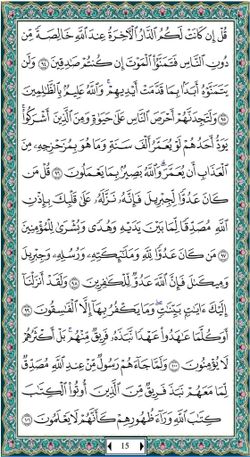 قُلْ إِن كَانَتْ لَكُمُ الدَّارُ الْآخِرَةُ عِندَ اللَّهِ خَالِصَةً مِّن
دُونِ النَّاسِ فَتَمَنَّوُا الْمَوْتَ إِن كُنتُمْ صَادِقِينَ ٩٤ وَلَن
يَتَمَنَّوْهُ أَبَدًا بِمَا قَدَّمَتْ أَيْدِيهِمْ وَاللَّهُ عَلِيمٌ بِالظَّالِمِينَ
٩٥ وَلَتَجِدَنَّهُمْ أَحْرَصَ النَّاسِ عَلَىٰ حَيَاةٍ وَمِنَ الَّذِينَ أَشْرَكُوا
يَوَدُّ أَحَدُهُمْ لَوْ يُعَمَّرُ أَلْفَ سَنَةٍ وَمَا هُوَ بِمُزَحْزِحِهِ مِنَ
الْعَذَابِ أَن يُعَمَّرَ وَاللَّهُ بَصِيرٌ بِمَا يَعْمَلُونَ ٩٦ قُلْ مَن
كَانَ عَدُوًّا لِّجِبْرِيلَ فَإِنَّهُ نَزَّلَهُ عَلَىٰ قَلْبِكَ بِإِذْنِ
اللَّهِ مُصَدِّقًا لِّمَا بَيْنَ يَدَيْهِ وَهُدًى وَبُشْرَىٰ لِلْمُؤْمِنِينَ
٩٧ مَن كَانَ عَدُوًّا لِّلَّهِ وَمَلَائِكَتِهِ وَرُسُلِهِ وَجِبْرِيلَ
وَمِيكَالَ فَإِنَّ اللَّهَ عَدُوٌّ لِّلْكَافِرِينَ ٩٨ وَلَقَدْ أَنزَلْنَا
إِلَيْكَ آيَاتٍ بَيِّنَاتٍ وَمَا يَكْفُرُ بِهَا إِلَّا الْفَاسِقُونَ ٩٩
أَوَكُلَّمَا عَاهَدُوا عَهْدًا نَّبَذَهُ فَرِيقٌ مِّنْهُم بَلْ أَكْثَرُهُمْ
لَا يُؤْمِنُونَ ١٠٠ وَلَمَّا جَاءَهُمْ رَسُولٌ مِّنْ عِندِ اللَّهِ مُصَدِّقٌ
لِّمَا مَعَهُمْ نَبَذَ فَرِيقٌ مِّنَ الَّذِينَ أُوتُوا الْكِتَابَ
كِتَابَ اللَّهِ وَرَاءَ ظُهُورِهِمْ كَأَنَّهُمْ لَا يَعْلَمُونَ ١٠١
15